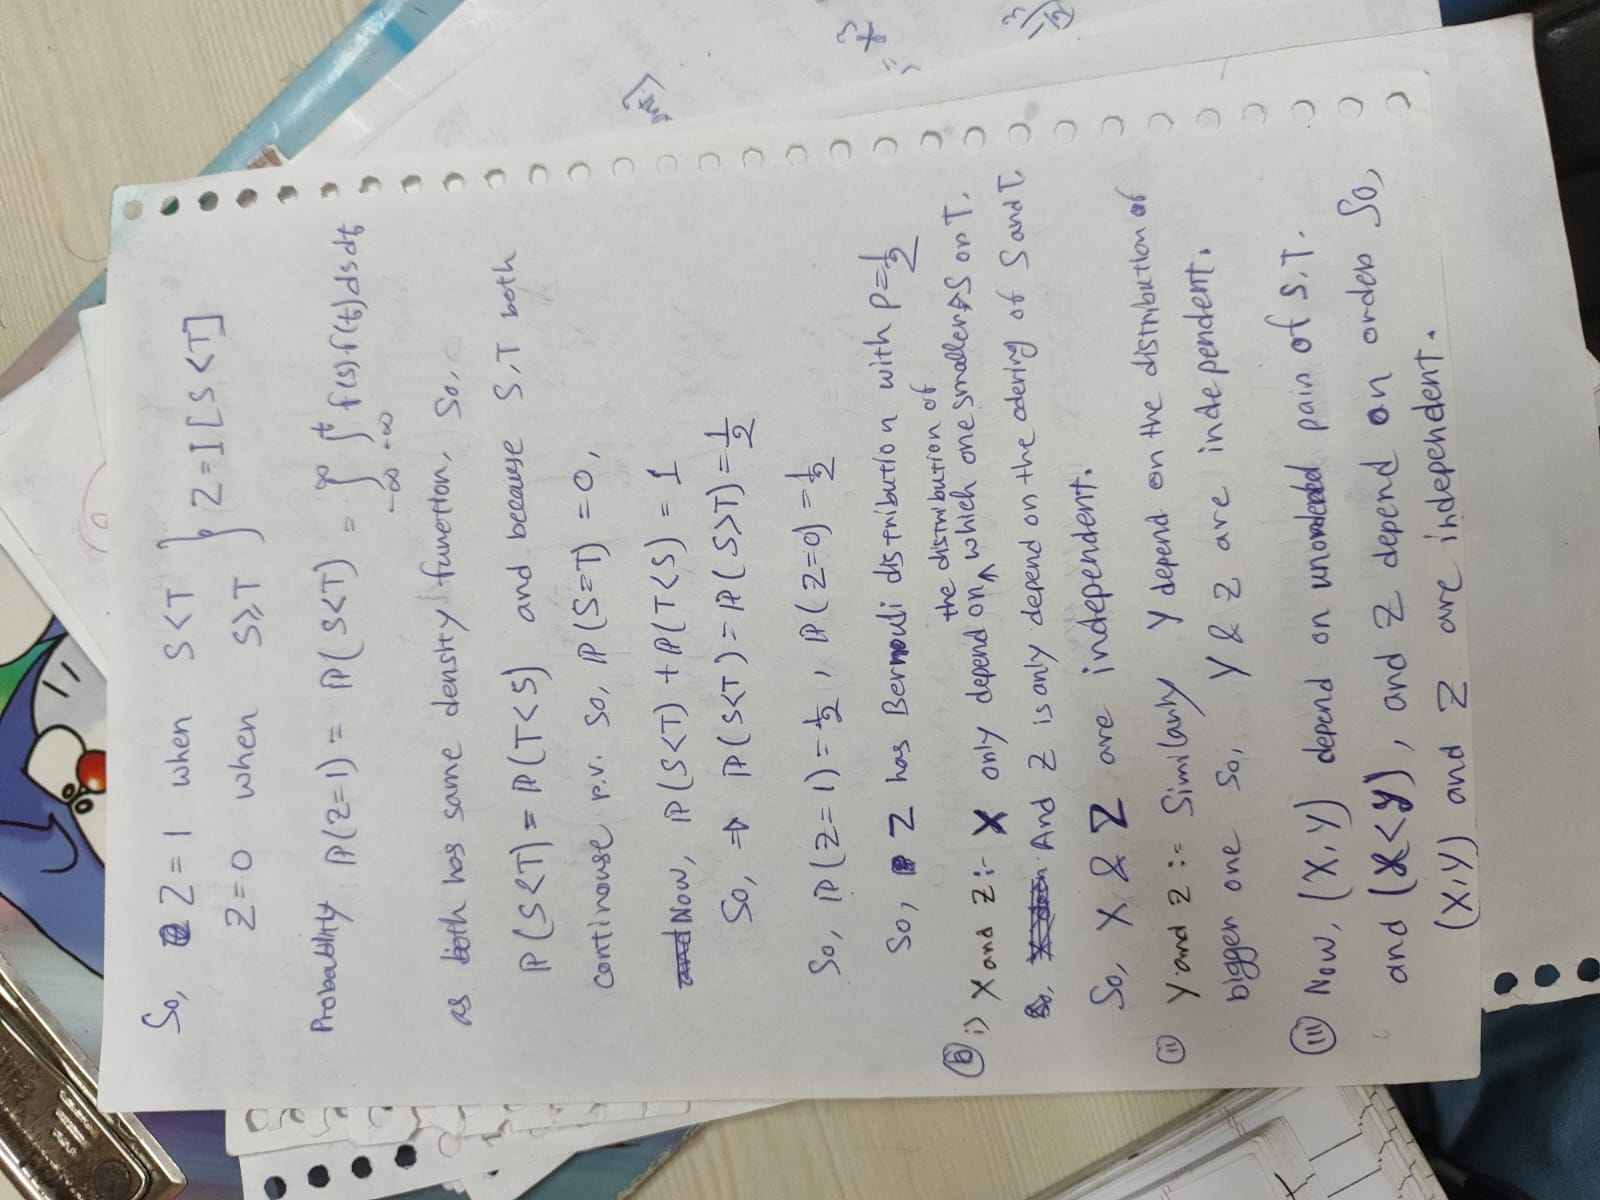 So, Z = 1 when S<T } Z = I[S<T]
Z=0 when S≥T
Probablirty P(Z=1) = P(S<T) = ∫_{-∞}^{∞} ∫_{-∞}^{t} f(s) f(t) ds dt
as both has same density function, So,
P(S<T) = P(T<S) and because S,T both
continouse r.v. So, P(S=T) = 0,
and Now, P(S<T) + P(T<S) = 1
So, ⇒ P(S<T) = P(S>T) = 1/2
So, P(Z=1) = 1/2, P(Z=0) = 1/2
So, Z has Bernouli distribution with p=1/2
the distribution of
(b) i) X and Z :- X only depend on ^ which one smaller S or T.
So, And Z is only depend on the odering of S and T.
So, X & Z are independent.
(ii) Y and Z := Similarly Y depend on the distribution of
bigger one So, Y & Z are independent.
(iii) Now, (X,Y) depend on unordered pair of S,T.
and (X<Y), and Z depend on order So,
(X,Y) and Z are independent.